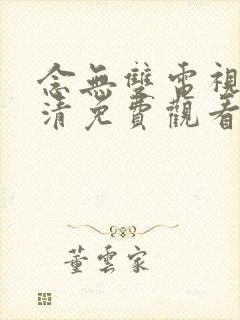 念無雙電視
清免費觀看
董雲家